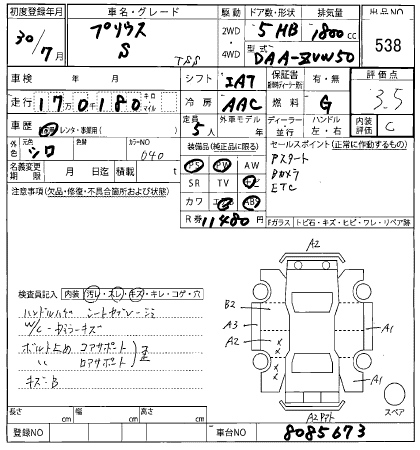 初度登録年月 車名・グレード 駆動 ドア数・形状 排気量 出品NO
30/7月 プリウス S TSS 2WD・4WD 5 HB 1800 cc 538
型式 DAA-ZVW50
車検 年 月 シフト IAT 保証書 有・無 評価点
走行 170180 キロ マイル 冷房 AAC 燃料 G 3.5
車歴 自家 レンタ・事業用( ) 定員 5人 外車モデル ディーラー・並行 ハンドル 左・右 内装評価 C
外色 元色 シロ 色替 カラーNO 040 装備品(純正品に限る) セールスポイント(正常に作動するもの)
名義変更期限 月 日迄 積載 t PS PW Pスタート
注意事項(欠品・修復・不具合箇所および状態) SR TV ナビ Bカメラ
カワ エアB ABS ETC
R券 11480円 Fガラス トビ石・キズ・ヒビ・ワレ・リペア跡
A2
検査員記入 内装 汚レ・スレ・キズ・キレ・コゲ・穴
B2
A3 A1
W/C
A2
ボルト止め コアサポート
〃 ロアサポート
キズ・B
A1
スペア
長さ cm 幅 cm 高さ cm
登録NO 車台NO 8085673